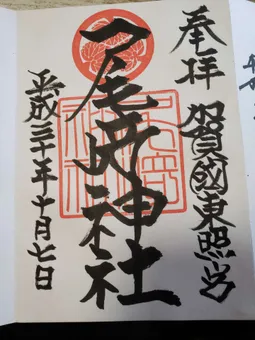 奉拝
加賀國東照宮
尾崎神社
平成三十年十月七日